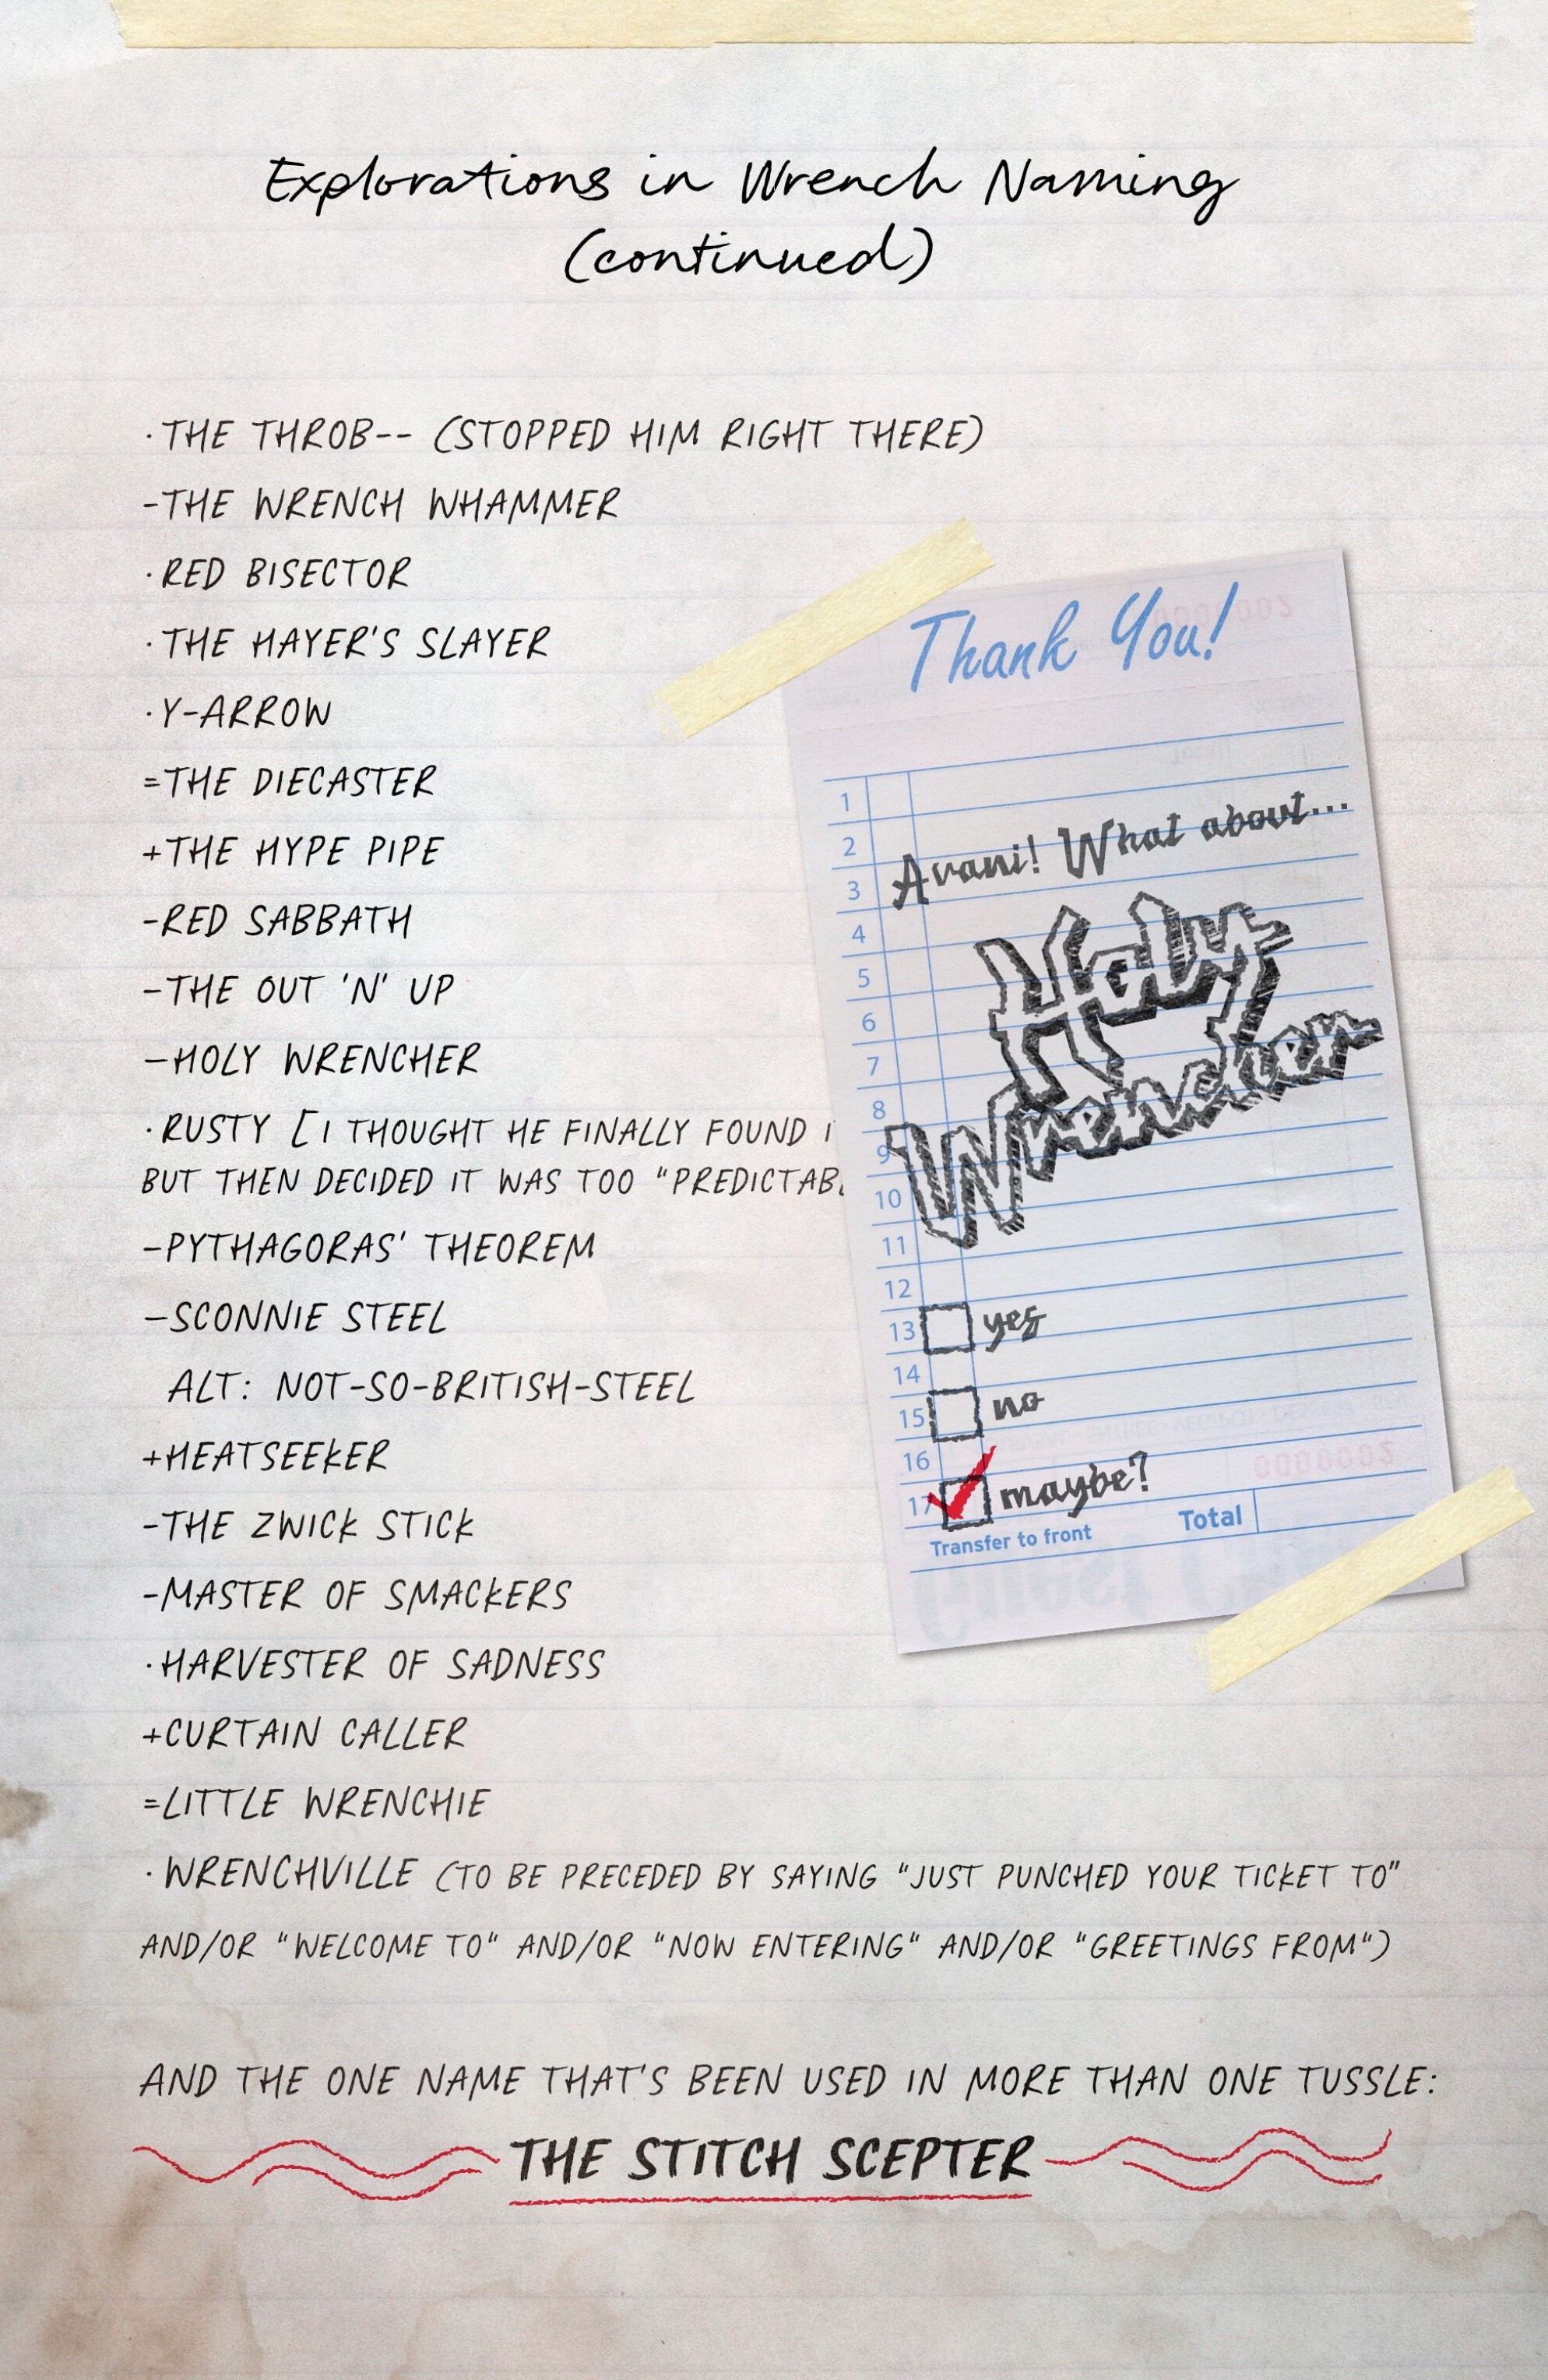 Explorations in Wrench Naming
(continued)
·THE THROB-- (STOPPED HIM RIGHT THERE)
-THE WRENCH WHAMMER
·RED BISECTOR
·THE HAYER'S SLAYER
·Y-ARROW
=THE DIECASTER
+THE HYPE PIPE
-RED SABBATH
-THE OUT 'N' UP
-HOLY WRENCHER
·RUSTY [I THOUGHT HE FINALLY FOUND
BUT THEN DECIDED IT WAS TOO
-PYTHAGORAS' THEOREM
-SCONNIE STEEL
ALT: NOT-SO-BRITISH-STEEL
+HEATSEEKER
-THE ZWICK STICK
-MASTER OF SMACKERS
·HARVESTER OF SADNESS
+CURTAIN CALLER
=LITTLE WRENCHIE
·WRENCHVILLE (TO BE PRECEDED BY SAYING "JUST PUNCHED YOUR TICKET TO"
AND/OR "WELCOME TO" AND/OR "NOW ENTERING" AND/OR "GREETINGS FROM")
AND THE ONE NAME THAT'S BEEN USED IN MORE THAN ONE TUSSLE:
THE STITCH SCEPTER
Thank You!
1
2
Avani! What about...
3
4
5
Holy
6
7
8
Wrencher
9
10
11
12
13 yes
14
15 no
16
17 maybe?
Transfer to front Total
0000002